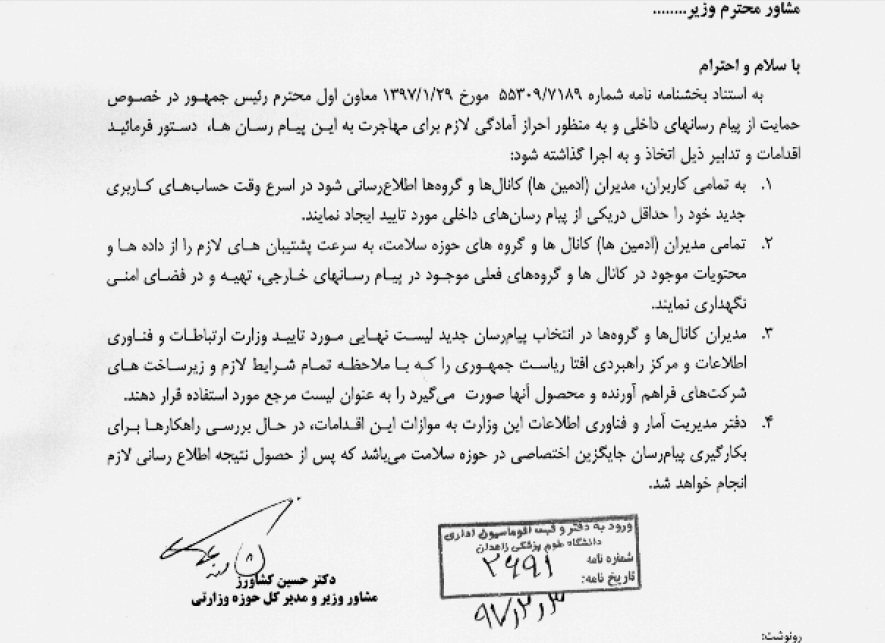 مشاور محترم وزیر........
با سلام و احترام
به استناد بخشنامه نامه شماره ۵۵۳۰۹/۷۱۸۹ مورخ ۱۳۹۷/۱/۲۹ معاون اول محترم رئیس جمهور در خصوص
حمایت از پیام رسانهای داخلی و به منظور احراز آمادگی لازم برای مهاجرت به این پیام رسان ها، دستور فرمائید
اقدامات و تدابیر ذیل اتخاذ و به اجرا گذاشته شود:
۱. به تمامی کاربران، مدیران (ادمین ها) کانال‌ها و گروه‌ها اطلاع‌رسانی شود در اسرع وقت حساب‌های کاربری
جدید خود را حداقل دریکی از پیام رسان‌های داخلی مورد تایید ایجاد نمایند.
۲. تمامی مدیران (ادمین ها) کانال ها و گروه های حوزه سلامت، به سرعت پشتیبان های لازم را از داده ها و
محتویات موجود در کانال ها و گروه‌های فعلی موجود در پیام رسانهای خارجی، تهیه و در فضای امنی
نگهداری نمایند.
۳. مدیران کانال‌ها و گروه‌ها در انتخاب پیام‌رسان جدید لیست نهایی مورد تایید وزارت ارتباطات و فناوری
اطلاعات و مرکز راهبردی افتا ریاست جمهوری را که با ملاحظه تمام شرایط لازم و زیرساخت های
شرکت‌های فراهم آورنده و محصول آنها صورت می‌گیرد را به عنوان لیست مرجع مورد استفاده قرار دهند.
۴. دفتر مدیریت آمار و فناوری اطلاعات این وزارت به موازات این اقدامات، در حال بررسی راهکارها برای
بکارگیری پیام‌رسان جایگزین اختصاصی در حوزه سلامت می‌باشد که پس از حصول نتیجه اطلاع رسانی لازم
انجام خواهد شد.
ورود به دفتر و ثبت اتوماسیون اداری
دانشگاه علوم پزشکی زاهدان
شماره نامه ۲۶۹۱
تاریخ نامه:
۹۷/۲/۳
دکتر حسین کشاورز
مشاور وزیر و مدیر کل حوزه وزارتی
رونوشت: